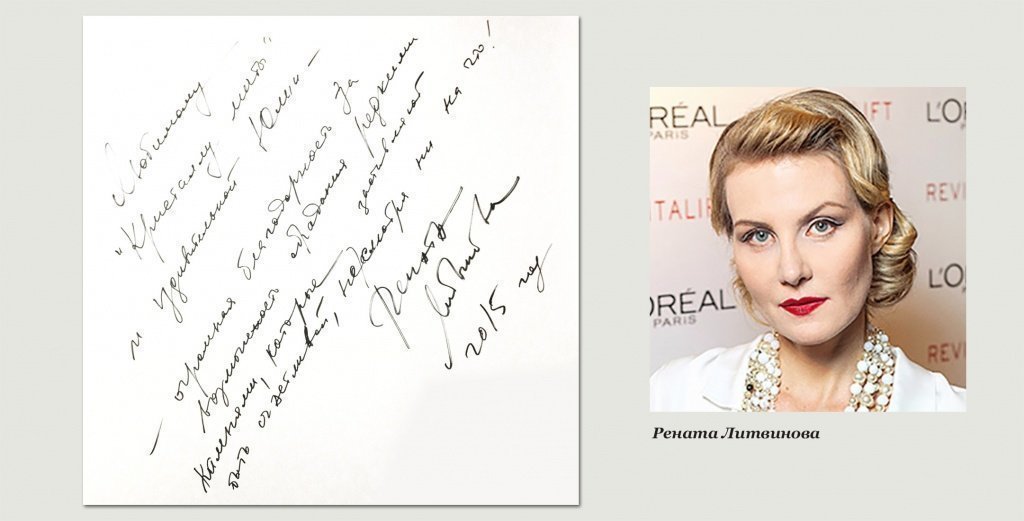 Любимому
"Кристаллу мечты"
и удивительной Юлии –
– огромная благодарность за
возможность обладания редкими
камнями, которые заставляют
быть счастливой, несмотря ни на что!
Рената
Литвинова
2015 год
ORÉAL
PARIS
LIFT
L'O
TALIF
REVI
ORÉAL
PARIS
L'O
REVI
Рената Литвинова